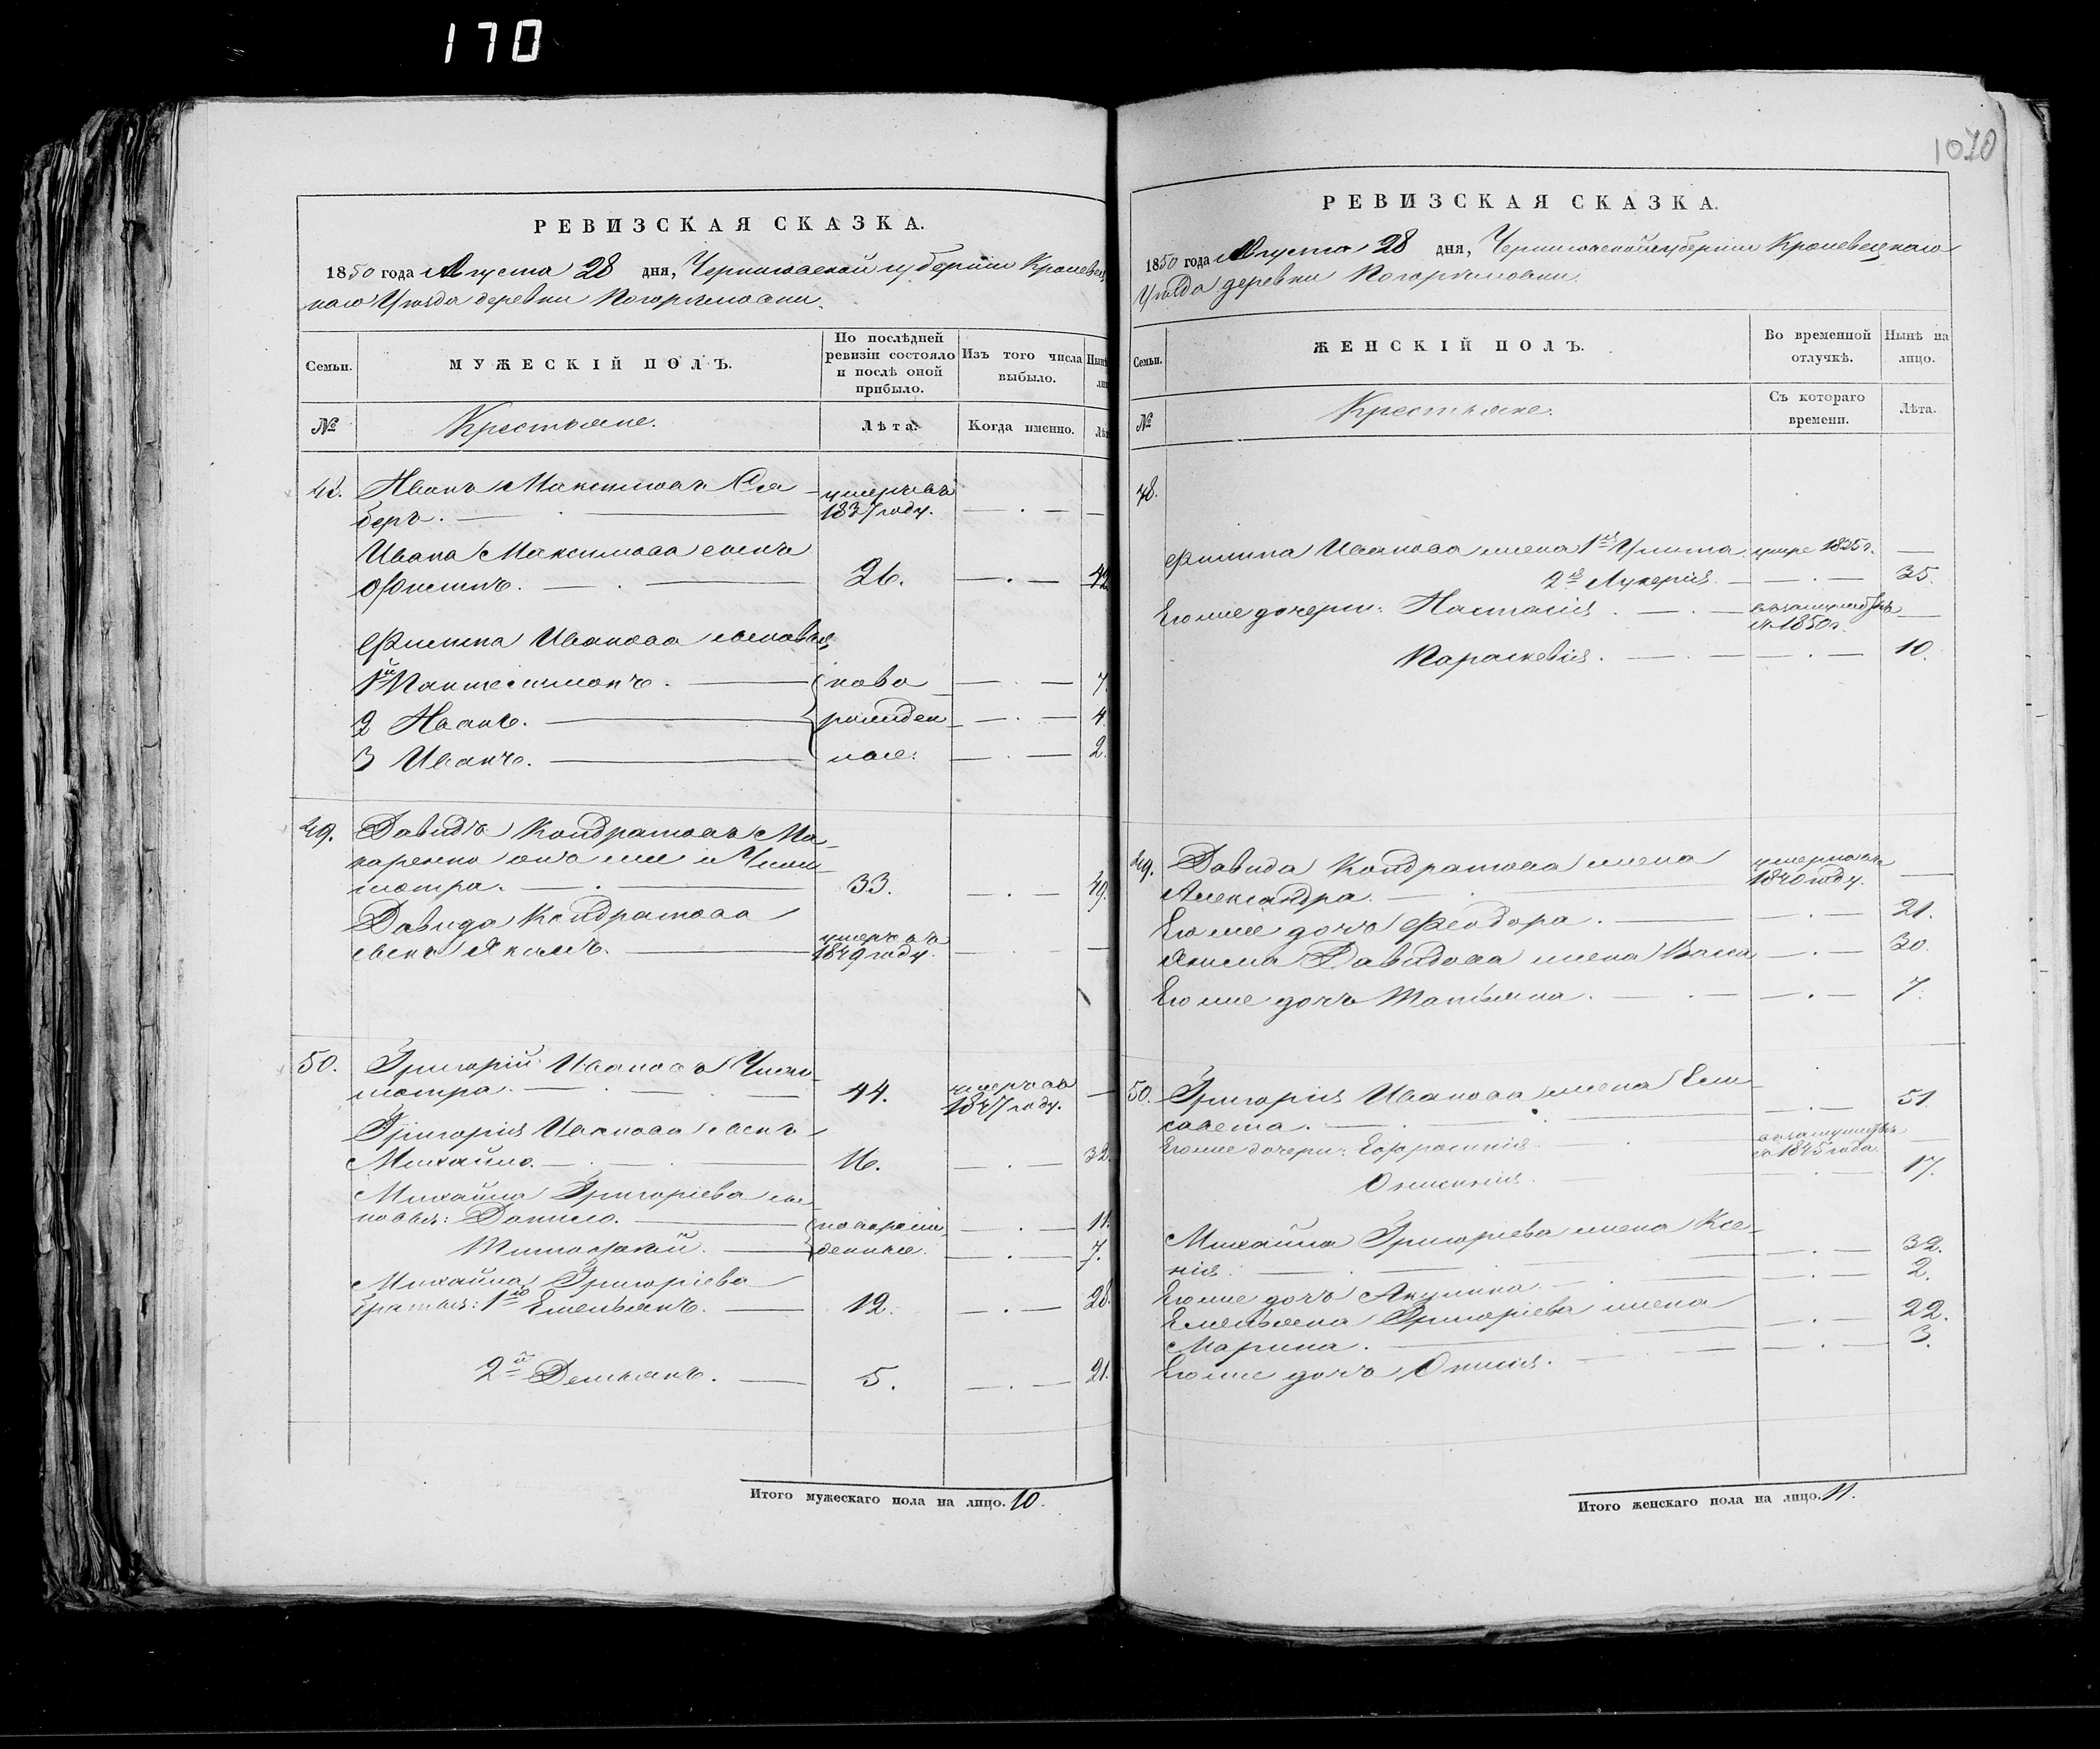 170
1010
РЕВИЗСКАЯ СКАЗКА.
1850 года Августа 28 дня, Черниговской губерніи Кролевец
каго Уѣзда деревни
Семьи.
МУЖЕСКІЙ ПОЛЪ.
По послѣдней ревизіи состояло и послѣ оной прибыло.
Изъ того числа выбыло.
№
Крестьяне.
Лѣта.
Когда именно.
48.
Иванъ Максимовъ
беръ.
умеръ въ 1837 году.
Ивана Максимова сынъ
Филипъ.
26.
42
Филипа Иванова сыновья
1й Пантелимонъ.
ново
7.
2 Иванъ.
рожден
4.
3 Иванъ.
ные:
2.
49.
Давидъ Кондратовъ Ма
каренко онъ же и
33.
49.
Давида Кондратова
сынъ Якимъ.
умеръ въ 1849 году.
50.
Григорій Ивановъ
44.
умеръ въ 1847 году.
Григорія Иванова сынъ
Михайло.
16.
32.
Михайла Григоріева сы
новья: Данило.
новорож
11.
Тимофей.
денные.
7.
Михайла Григоріева
братья: 1й Емельянъ.
12.
28.
2й Демьянъ.
5.
21.
Итого мужескаго пола на лицо. 10.
РЕВИЗСКАЯ СКАЗКА.
1850 года Августа 28 дня, Черниговской губерніи Кролевецкаго
Уѣзда деревни
Семьи.
ЖЕНСКІЙ ПОЛЪ.
Во временной отлучкѣ.
Нынѣ на лицо.
№
Крестьяне.
Съ котораго времени.
Лѣта.
48.
Филипа Иванова жена 1я Улита
умре 1835 г.
2я Лукерія
35.
Его же дочери: Настасія
въ замужествѣ съ 1850 г.
Параскевія.
10.
49.
Давида Кондратова жена
умерла въ 1840 году.
Александра.
Его же дочь Феодора.
21.
Якима Давидова жена
30.
Его же дочь Татьяна.
7.
50.
Григорія Иванова жена Ели
51.
савета.
Его же дочери: Евфросинія
въ замужествѣ съ 1845 года.
17.
Михайла Григоріева жена Ксе
32.
нія.
Его же дочь Акулина
2.
Емельяна Григоріева жена
22.
Марина.
3.
Его же дочь
Итого женскаго пола на лицо. 11.